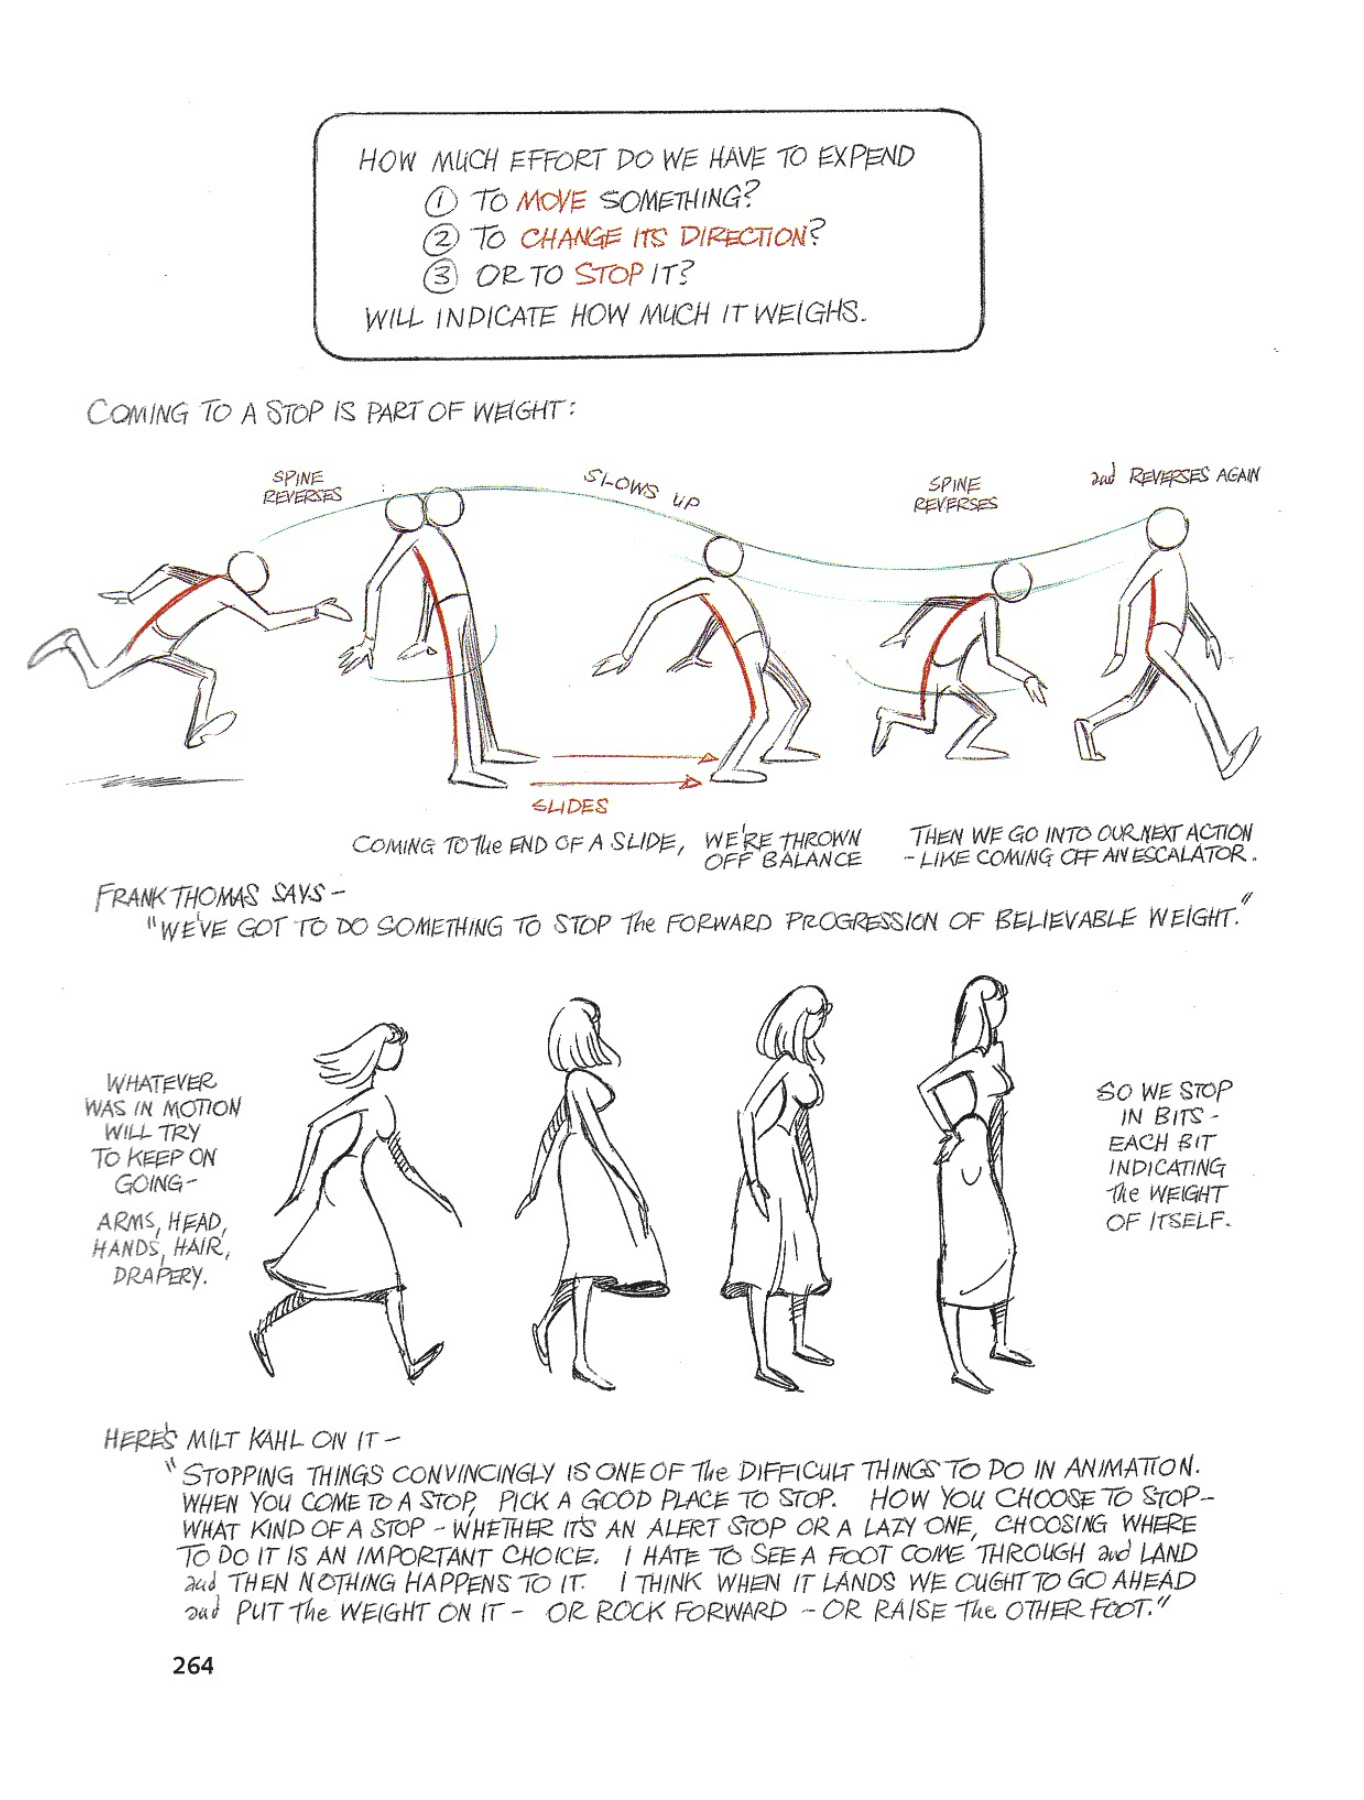 HOW MUCH EFFORT DO WE HAVE TO EXPEND
① TO MOVE SOMETHING?
② TO CHANGE ITS DIRECTION?
③ OR TO STOP IT?
WILL INDICATE HOW MUCH IT WEIGHS.
COMING TO A STOP IS PART OF WEIGHT:
SPINE
REVERSES
SLOWS UP
SPINE
REVERSES
and REVERSES AGAIN
SLIDES
COMING TO The END OF A SLIDE,
WE'RE THROWN
OFF BALANCE
THEN WE GO INTO OUR NEXT ACTION
- LIKE COMING OFF AN ESCALATOR.
FRANK THOMAS SAYS -
"WE'VE GOT TO DO SOMETHING TO STOP The FORWARD PROGRESSION OF BELIEVABLE WEIGHT."
WHATEVER
WAS IN MOTION
WILL TRY
TO KEEP ON
GOING -
ARMS, HEAD,
HANDS, HAIR,
DRAPERY.
SO WE STOP
IN BITS -
EACH BIT
INDICATING
The WEIGHT
OF ITSELF.
HERE'S MILT KAHL ON IT -
"STOPPING THINGS CONVINCINGLY IS ONE OF The DIFFICULT THINGS TO DO IN ANIMATION.
WHEN YOU COME TO A STOP, PICK A GOOD PLACE TO STOP. HOW YOU CHOOSE TO STOP -
WHAT KIND OF A STOP - WHETHER IT'S AN ALERT STOP OR A LAZY ONE, CHOOSING WHERE
TO DO IT IS AN IMPORTANT CHOICE. I HATE TO SEE A FOOT COME THROUGH and LAND
and THEN NOTHING HAPPENS TO IT. I THINK WHEN IT LANDS WE OUGHT TO GO AHEAD
and PUT The WEIGHT ON IT - OR ROCK FORWARD - OR RAISE The OTHER FOOT."
264